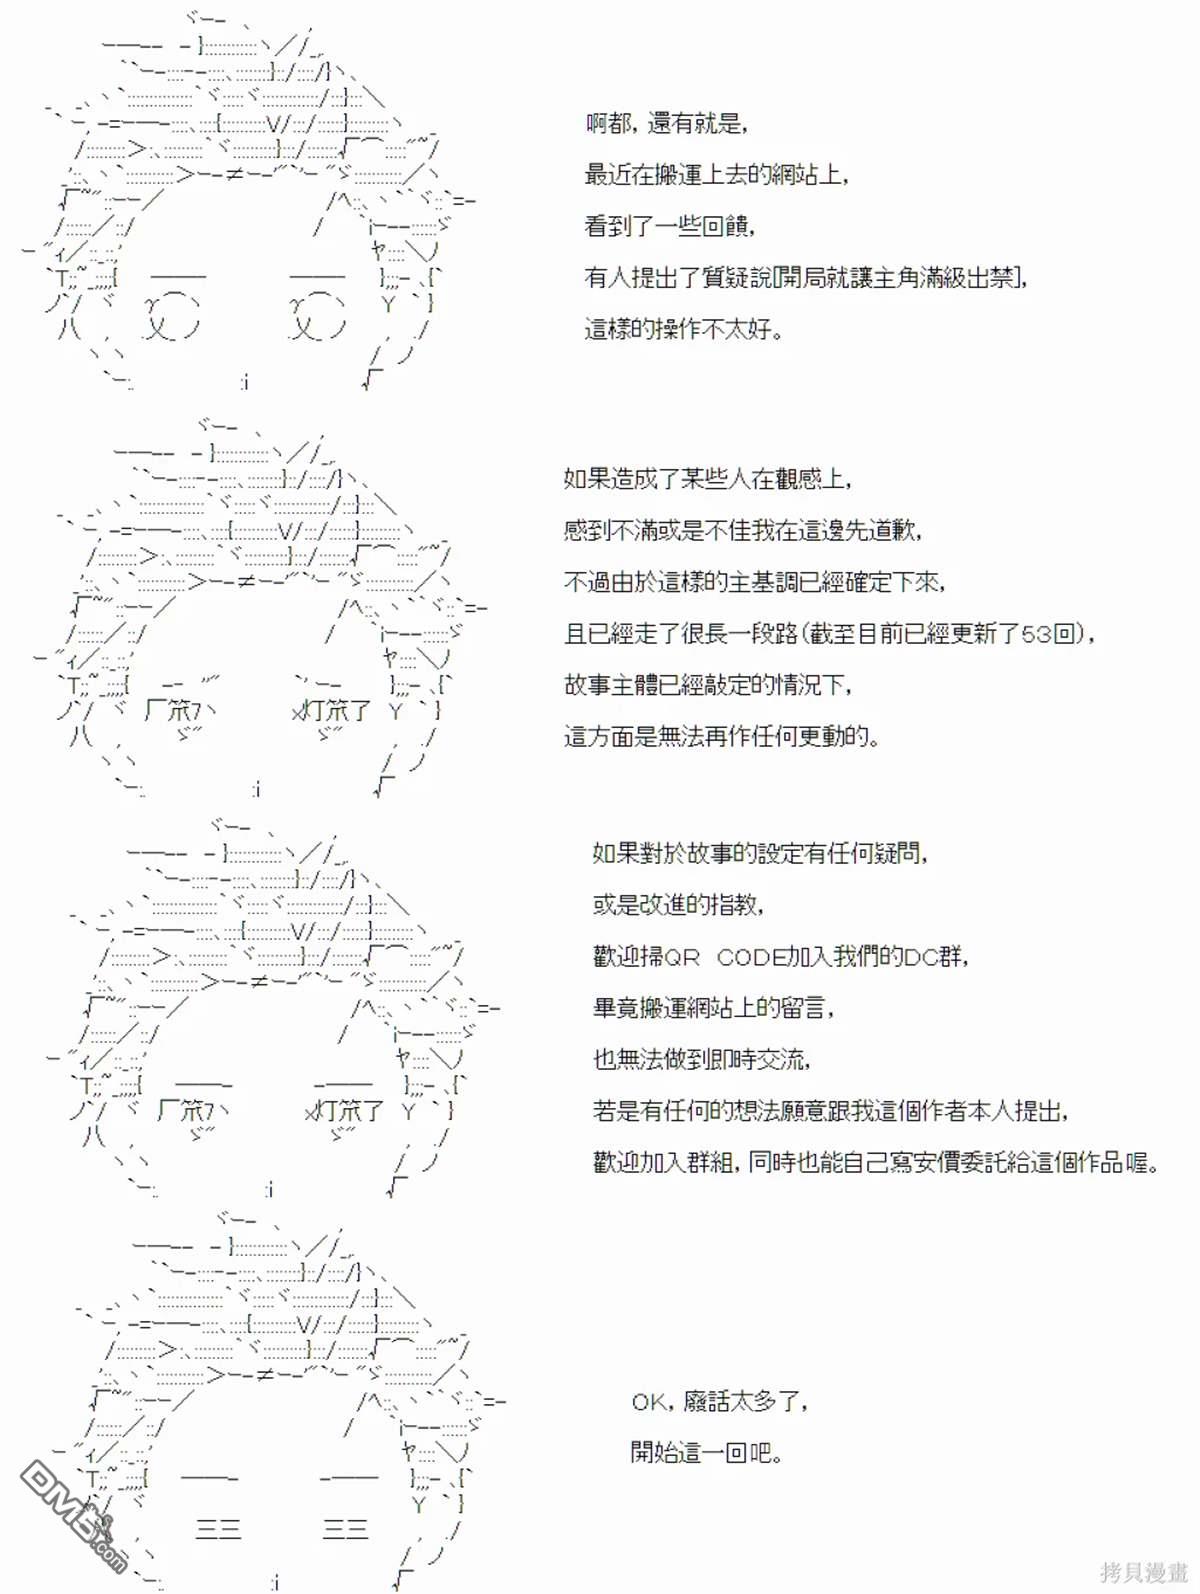 啊都，還有就是，
最近在搬運上去的網站上，
看到了一些回饋，
有人提出了質疑說[開局就讓主角滿級出禁]，
這樣的操作不太好。
如果造成了某些人在觀感上，
感到不滿或是不佳我在這邊先道歉，
不過由於這樣的主基調已經確定下來，
且已經走了很長一段路(截至目前已經更新了53回)，
故事主體已經敲定的情況下，
這方面是無法再作任何更動的。
如果對於故事的設定有任何疑問，
或是改進的指教，
歡迎掃QR CODE加入我們的DC群，
畢竟搬運網站上的留言，
也無法做到即時交流，
若是有任何的想法願意跟我這個作者本人提出，
歡迎加入群組，同時也能自己寫安價委託給這個作品喔。
OK，廢話太多了，
開始這一回吧。
DM5.com
拷貝漫畫